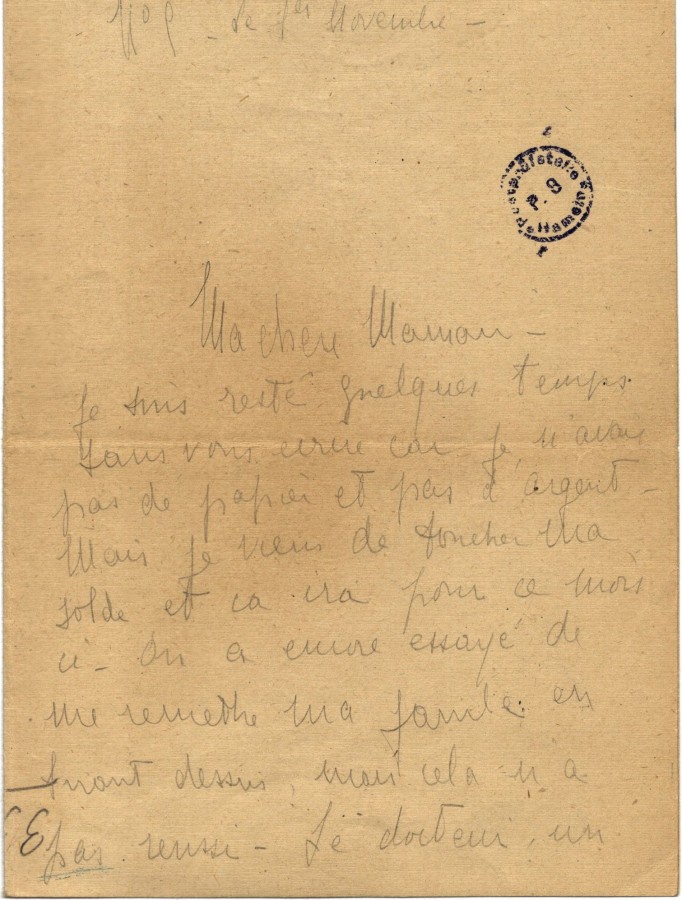 Le 1er Novembre -
P. 9
Ma chere Maman -
Je suis resté quelques temps
sans vous ecrire car je n'avais
pas de papier et pas d'argent -
Mais je viens de toucher ma
solde et ca ira pour ce mois
ci - On a encore essayé de
me remettre ma jambe en
tirant dessus, mais cela n'a
pas reussi - Le docteur, un